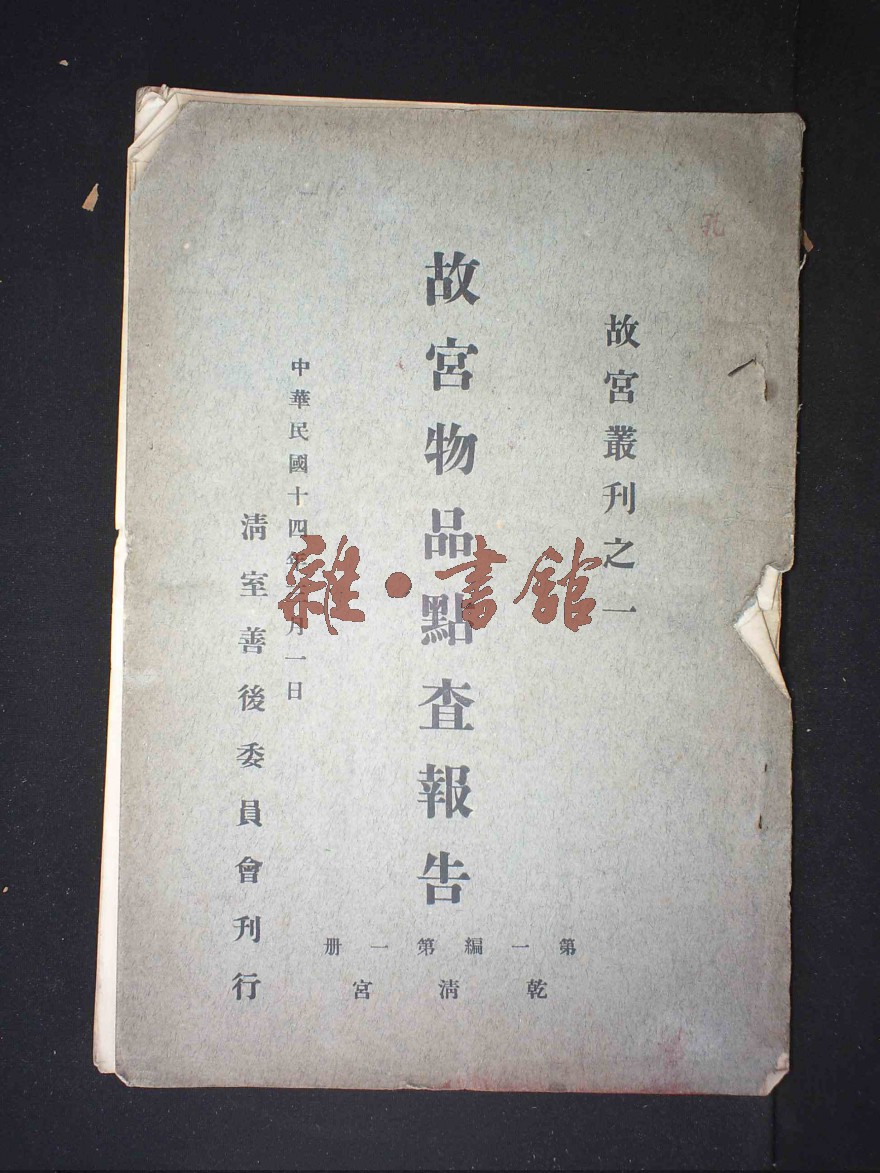 故宮叢刊之一
故宮物品點查報告
第一編第一册
乾淸宮
中華民國十四年 月一日
淸室善後委員會刊行
雜·書館